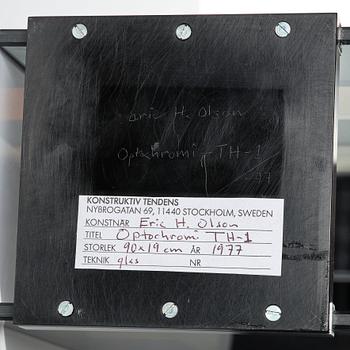 Eric H. Olson
Optochromi - TH-1
-77
KONSTRUKTIV TENDENS
NYBROGATAN 69, 11440 STOCKHOLM, SWEDEN
KONSTNÄR Eric H. Olson
TITEL Optochromi TH-1
STORLEK 90x19 cm ÅR 1977
TEKNIK glas NR